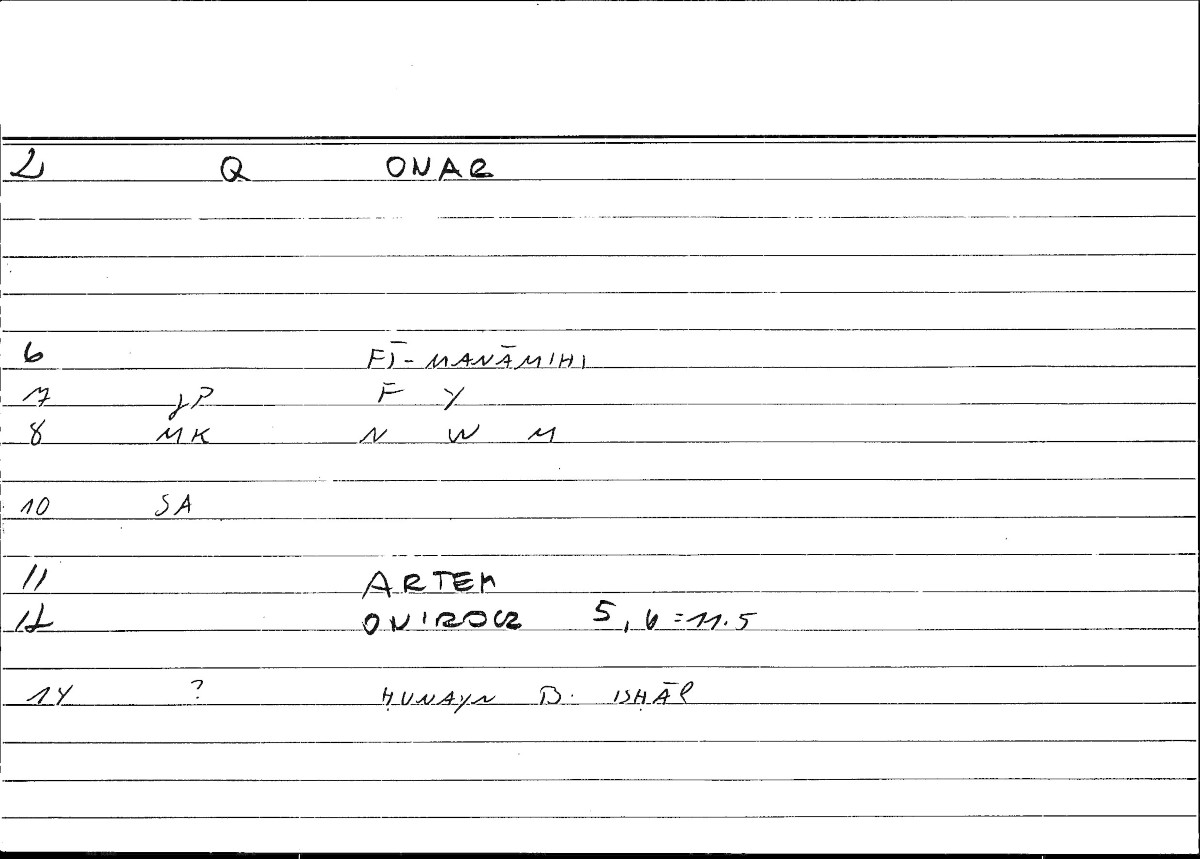 2 Q ONAR
6 FĪ-MANĀMIHI
7 JP F Y
8 MK N W M
10 SA
11 ARTEM
12 ONIROCR 5,6=11.5
14 ? ḤUNAYN B. ISḤĀQ